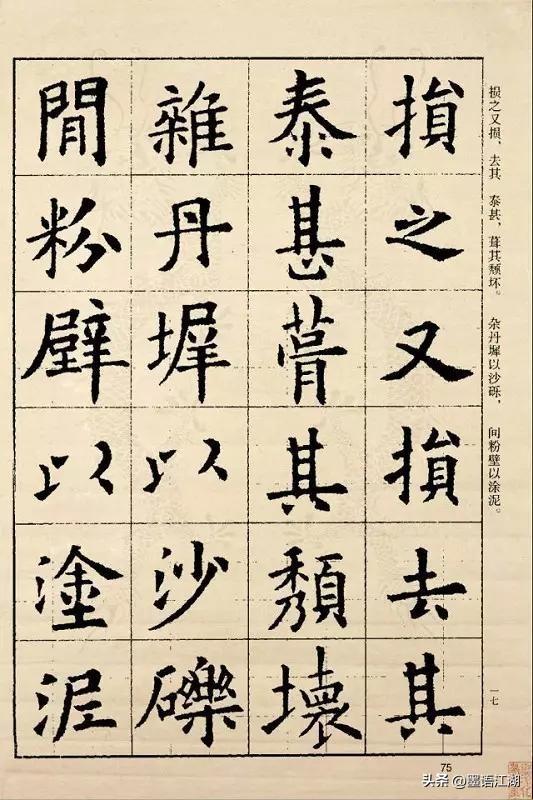 損之又損去其
泰甚葺其頹壞
雜丹墀以沙礫
間粉壁以塗泥
损之又损、去其 泰甚,葺其颓坏。 杂丹墀以沙砾, 间粉壁以涂泥。
一七
75
头条 @墨语江湖